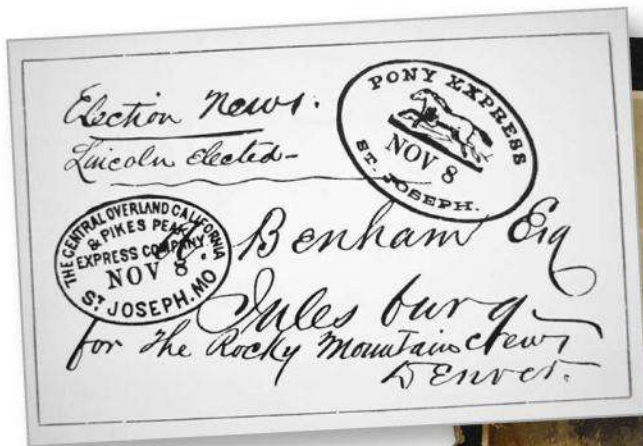 Election News.
Lincoln Elected—
PONY EXPRESS
NOV 8
ST. JOSEPH.
THE CENTRAL OVERLAND CALIFORNIA
& PIKES PEAK
EXPRESS COMPANY.
NOV 8.
ST JOSEPH. MO
Benham Esq
Julesburg
for The Rocky Mountain News
Denver.